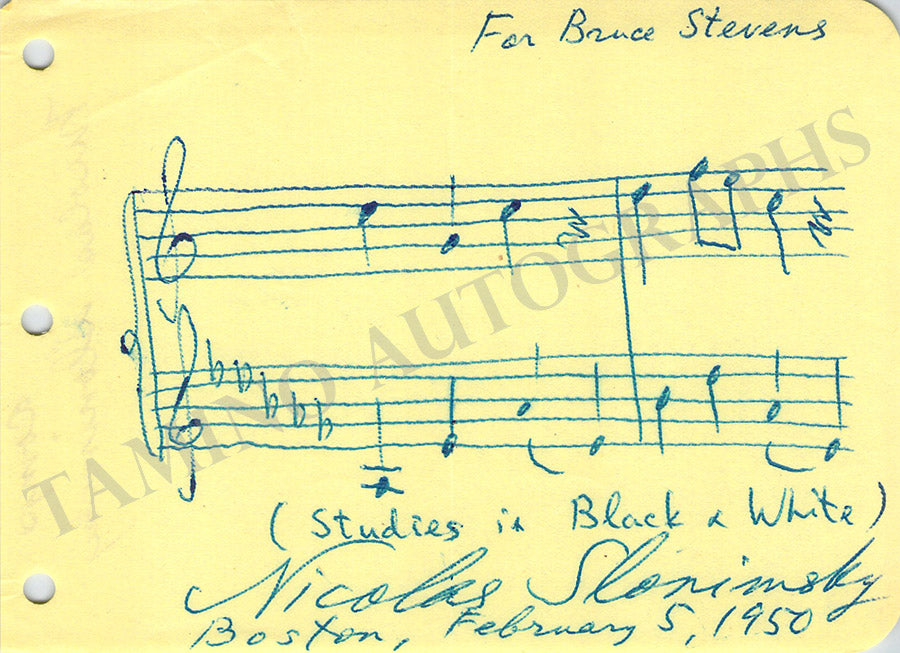 For Bruce Stevens
TAMINO AUTOGRAPHS
(Studies in Black & White)
Nicolas Slonimsky
Boston, February 5, 1950